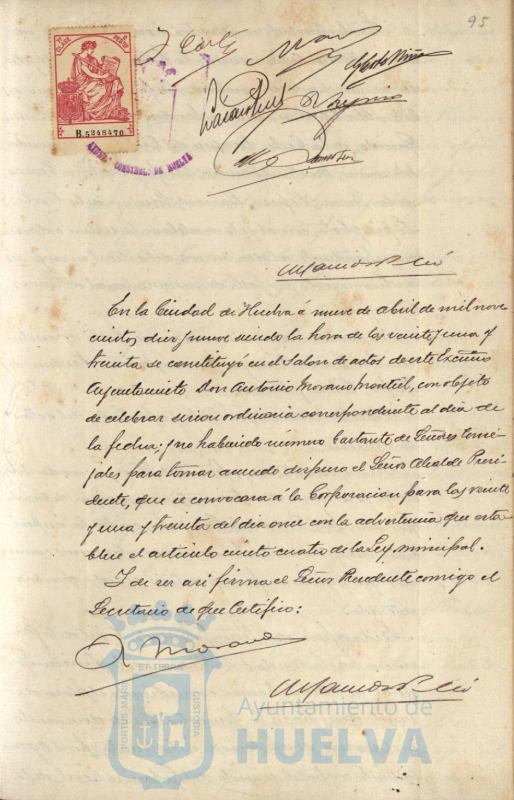 95
B.5248470
AYUNT. CONSTNAL. DE HUELVA
En la Ciudad de Huelva á nueve de abril de mil nove
cientos diez y nueve siendo la hora de las veinte y una y
treinta se constituyó en el Salon de actos de este Excmo
Ayuntamiento Don Antonio Morano Montiel, con objeto
de celebrar sesion ordinaria correspondiente al dia de
la fecha; y no habiendo número bastante de Señores Conce-
jales para tomar acuerdo dispuso el Señor Alcalde Presi-
dente, que se convocara á la Corporacion para las veinte
y una y treinta del dia once con la advertencia que esta
blece el artículo ciento cuatro de la Ley municipal.
Y de ser asi firma el Señor Presidente conmigo el
Secretario de que Certifico:
A Morano
PORTUS MARIS
ET TERRE
CUSTODIA
Ayuntamiento de
HUELVA